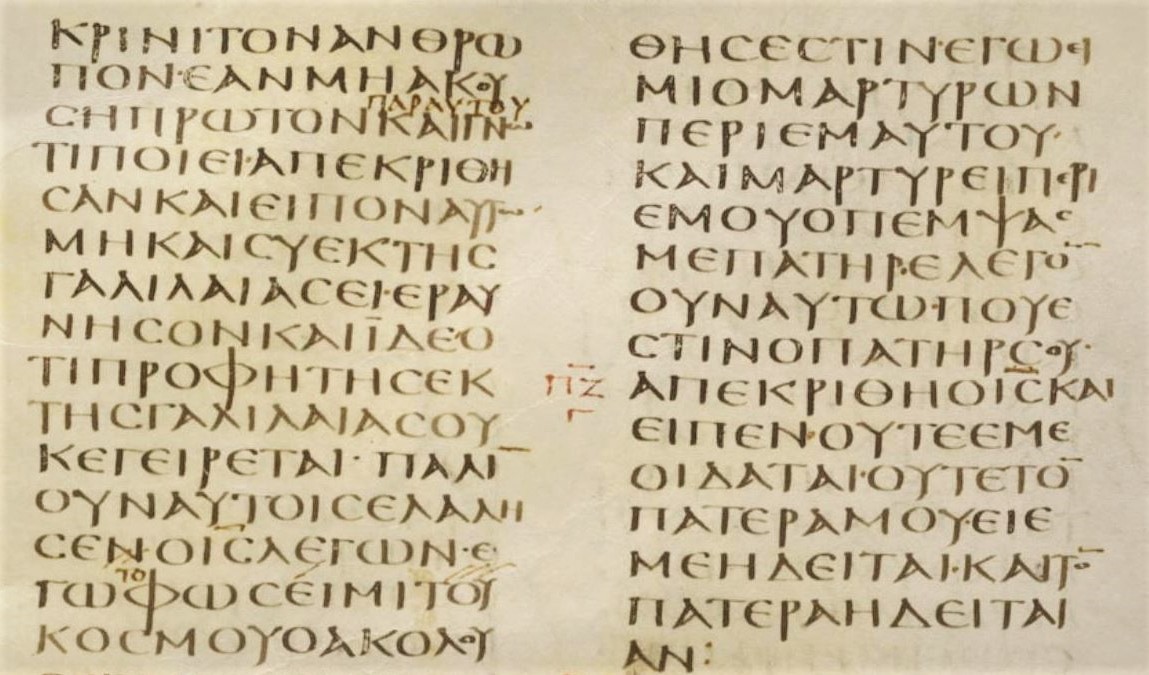 ΚΡΙΝΙΤΟΝΑΝΘΡΩ
ΠΟΝ·ΕΑΝΜΗΑΚΟΥ
ΠΑΡΑΥΤΟΥ
ϹΗΠΡΩΤΟΝΚΑΙΓΝⲰ
ΤΙΠΟΙΕΙ·ΑΠΕΚΡΙΘΗ
ϹΑΝΚΑΙΕΙΠΟΝΑΥΤΩ·
ΜΗΚΑΙϹΥΕΚΤΗϹ
ΓΑΛΙΛΑΙΑϹΕΙ·ΕΡΑΥ
ΝΗϹΟΝΚΑΙΪΔΕΟ
ΤΙΠΡΟΦΗΤΗϹΕΚ
ΤΗϹΓΑΛΙΛΑΙΑϹΟΥ
ΚΕΓΕΙΡΕΤΑΙ· ΠΑΛΙ̅
ΟΥΝΑΥΤΟΙϹΕΛΑΛΗ
ϹΕΝ·ΟΙ̅Ϲ̅ΛΕΓΩΝ·Ε
ΤΟ
ΓΩΦΩϹΕΙΜΙΤΟΥ
ΚΟϹΜΟΥΟΑΚΟΛΟΥ
ΘΗϹΕϹΤΙΝ·ΕΓΩΕΙ
ΜΙΟΜΑΡΤΥΡΩΝ
ΠΕΡΙΕΜΑΥΤΟΥ·
ΚΑΙΜΑΡΤΥΡΕΙΠΕΡΙ
ΕΜΟΥΟΠΕΜΨΑϹ
ΜΕΠΑΤΗΡ·ΕΛΕΓΟ̅
ΟΥΝΑΥΤΩ·ΠΟΥΕ
ϹΤΙΝΟΠΑΤΗΡϹΟΥ·
Π̅Ζ̅ ΑΠΕΚΡΙΘΗΟΙ̅Ϲ̅ΚΑΙ
Γ ΕΙΠΕΝ·ΟΥΤΕΕΜΕ
ΟΙΔΑΤΑΙ·ΟΥΤΕΤΟ̅
ΠΑΤΕΡΑΜΟΥ·ΕΙΕ
ΜΕΗΔΕΙΤΑΙ·ΚΑΙΤΟ̅
ΠΑΤΕΡΑΗΔΕΙΤΑΙ
ΑΝ: